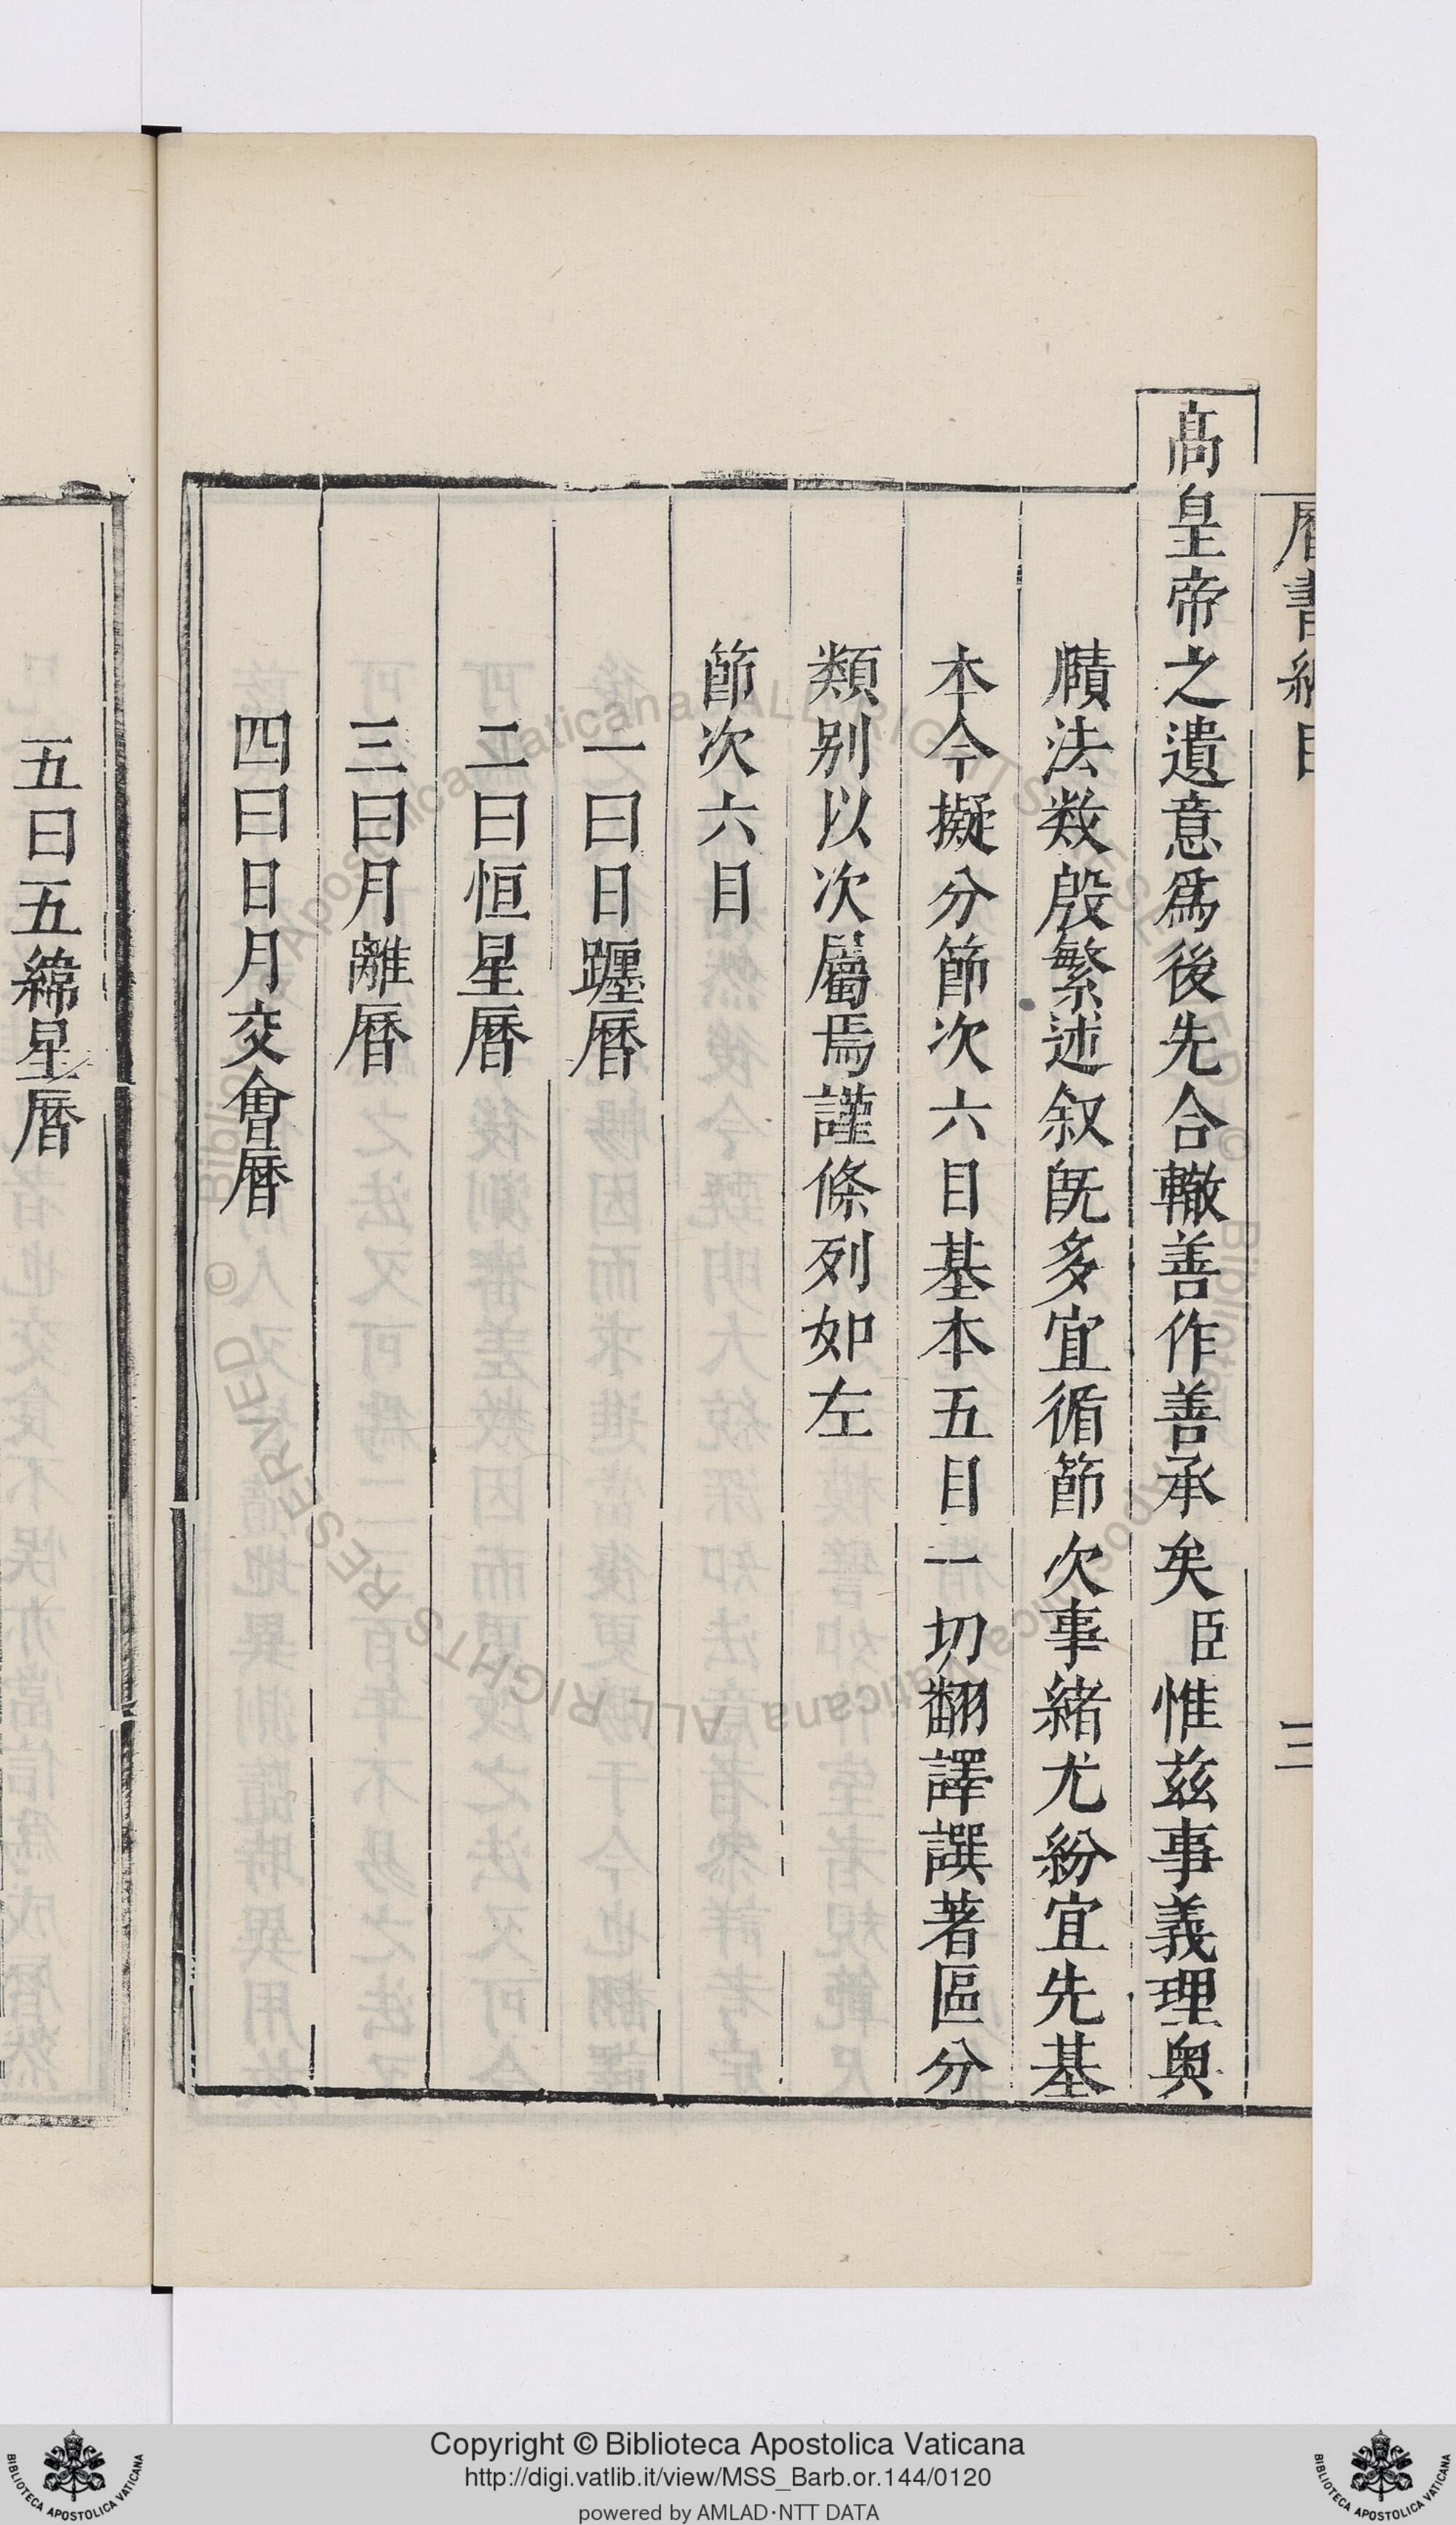 髙皇帝之遺意爲後先合轍善作善承矣臣惟茲事義理奥
賾法数殷繁述叙旣多宜循節次事緒尤紛宜先基
本今擬分節次六目基本五目一切翻譯譔著區分
類別以次屬焉謹條列如左
節次六目
一曰日躔曆
二曰恒星曆
三曰月離曆
四曰日月交會曆
五曰五緯星曆
三
Copyright © Biblioteca Apostolica Vaticana
http://digi.vatlib.it/view/MSS_Barb.or.144/0120
powered by AMLAD·NTT DATA
BIBLIOTECA APOSTOLICA VATICANA
BIBLIOTECA APOSTOLICA VATICANA